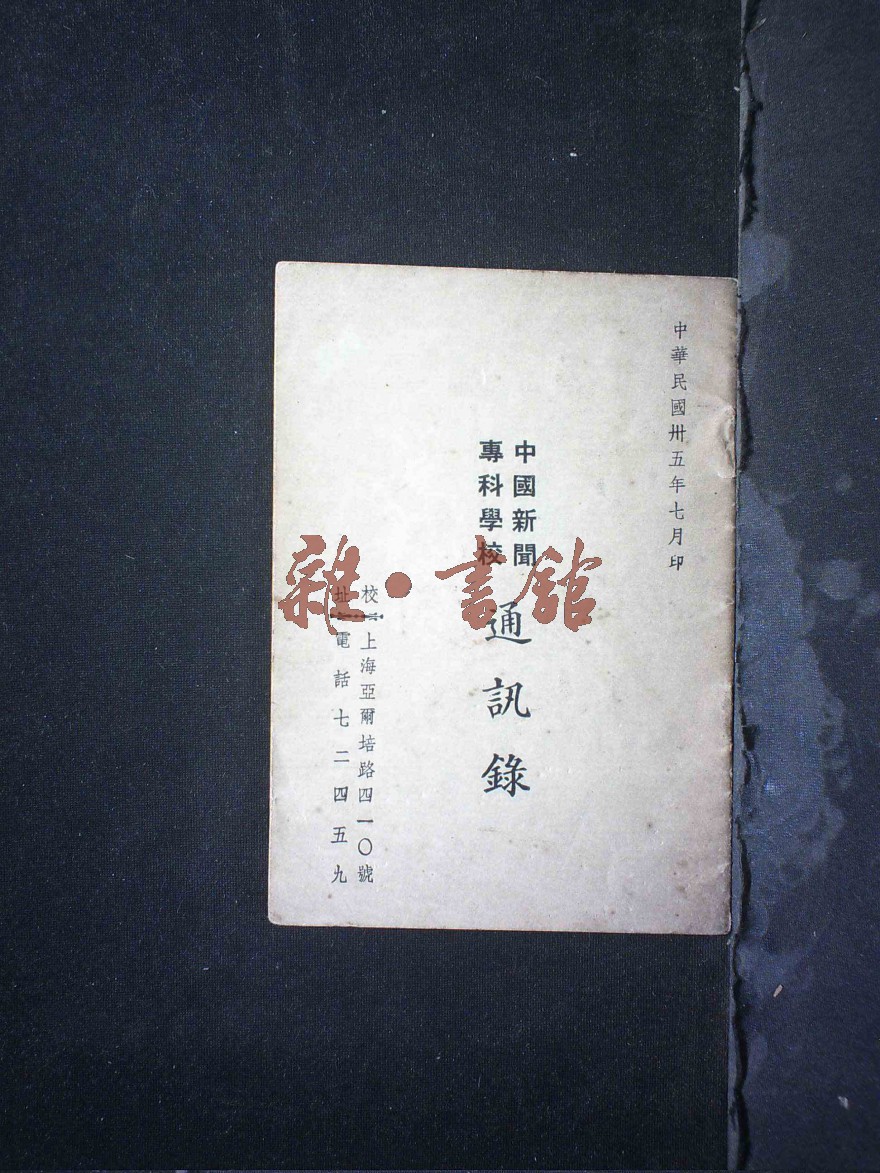 中華民國卅五年七月印
中國新聞
專科學校
通訊錄
校址
上海亞爾培路四一〇號
電話七二四五九
雜·書館